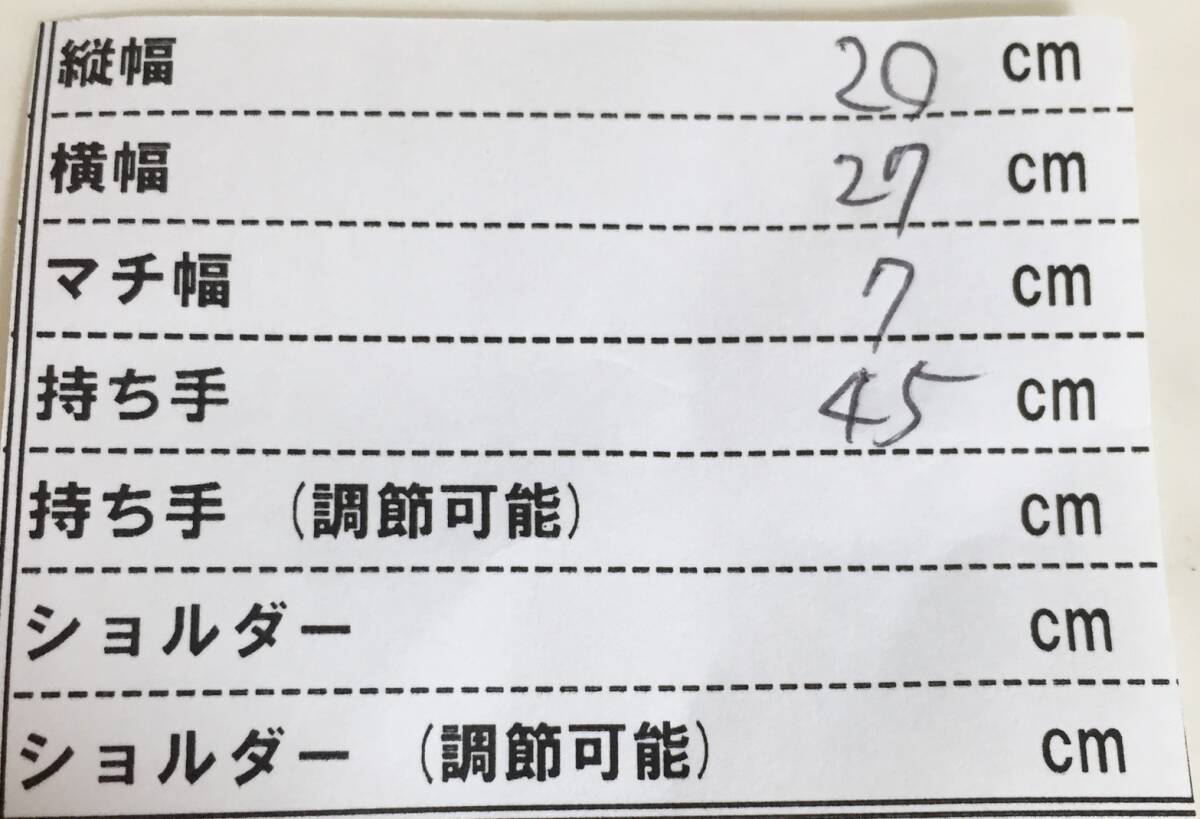 縦幅 20 cm
横幅 27 cm
マチ幅 7 cm
持ち手 45 cm
持ち手 (調節可能) cm
ショルダー cm
ショルダー (調節可能) cm